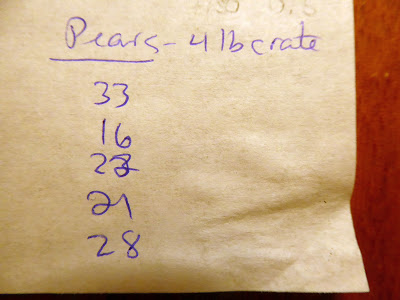 Pears - 4 lb crate
33
16
21
28